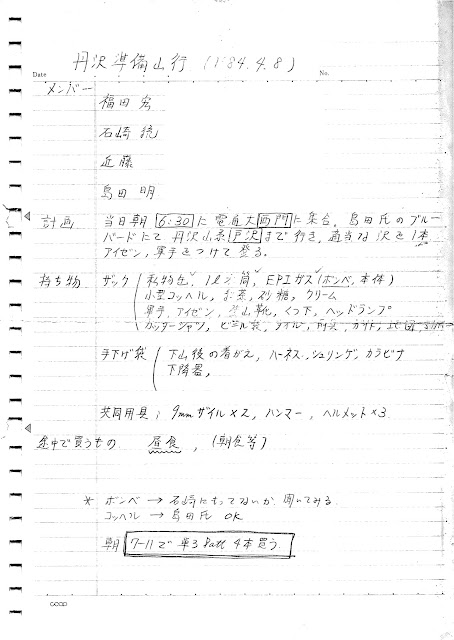 丹沢準備山行 (1'84.4.8)
Date
No.
メンバー
福田 宏
石崎
近藤
島田 明
計画 当日朝 6:30 に 電通大 西門 に集合. 島田氏のブルー
バードにて 丹沢山系 戸沢 まで行き, 適当な沢を1本
アイゼン, 軍手をつけて登る.
持ち物 ザック 私物缶, 1ℓ水筒, EPIガス (ボンベ, 本体)
小型コッヘル, お茶, 砂糖, クリーム
軍手, アイゼン, 登山靴, くつ下, ヘッドランプ
カッターシャツ, ビニル袋, タイル, 雨具, ガイド, 地図
手下げ袋 下山後の着がえ, ハーネス, シュリンゲ, カラビナ
下降器,
共同用具; 9mmザイル×2, ハンマー, ヘルメット×3
途中で買うもの 昼食, (朝食等)
* ボンベ → 石崎にもってないか 聞いてみる.
コッヘル → 島田氏 OK
朝 7-11で 単3 Batt 4本買う.
coop